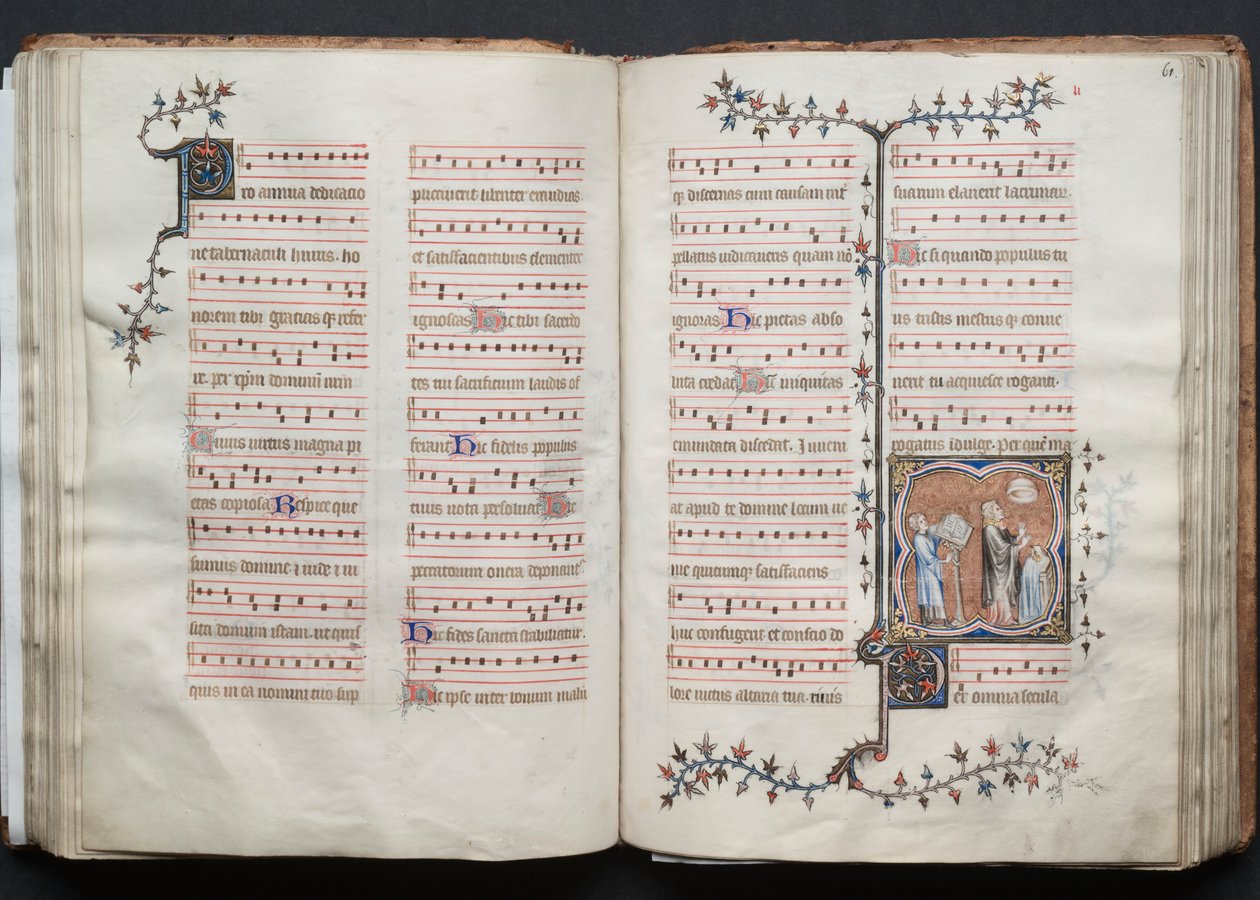 Pro annua dedicatio
ne tabernaculi huius. ho
norem tibi gracias q; refer
re. per xpm dominum nrm
Cuius uirtus magna pi
etas copiosa Respice que
sumus domine ⁊ uide ⁊ ui
sita domum istam. ut quis
quis in ea nomini tuo sup
plicauerit libenter exaudias.
et satisfacientibus clementer
ignoscas Hic tibi sacerdo
tes tui sacrificium laudis of
ferant Hic fidelis populus
uota persoluat Hic
peccatorum onera deponant
Hic fides sancta stabiliatur.
Hic ipse inter bonum malū
q; discernas cum causam int
pellatus iudicaueris quam nō
ignoras Hic pietas abso
luta Hic iniquitas
emundata discedat. Inueni
at apud te domine locum ue
nie quicumq; satisfaciens
huc confugerit et conscio do
lore uictus altaria tua
suarum lacrimar
Hic si quando populus tu
us tristis mestus q; conue
nerit tu acquiesce rogari.
rogatus idulge. Per quē ma
Per omnia secula
61.